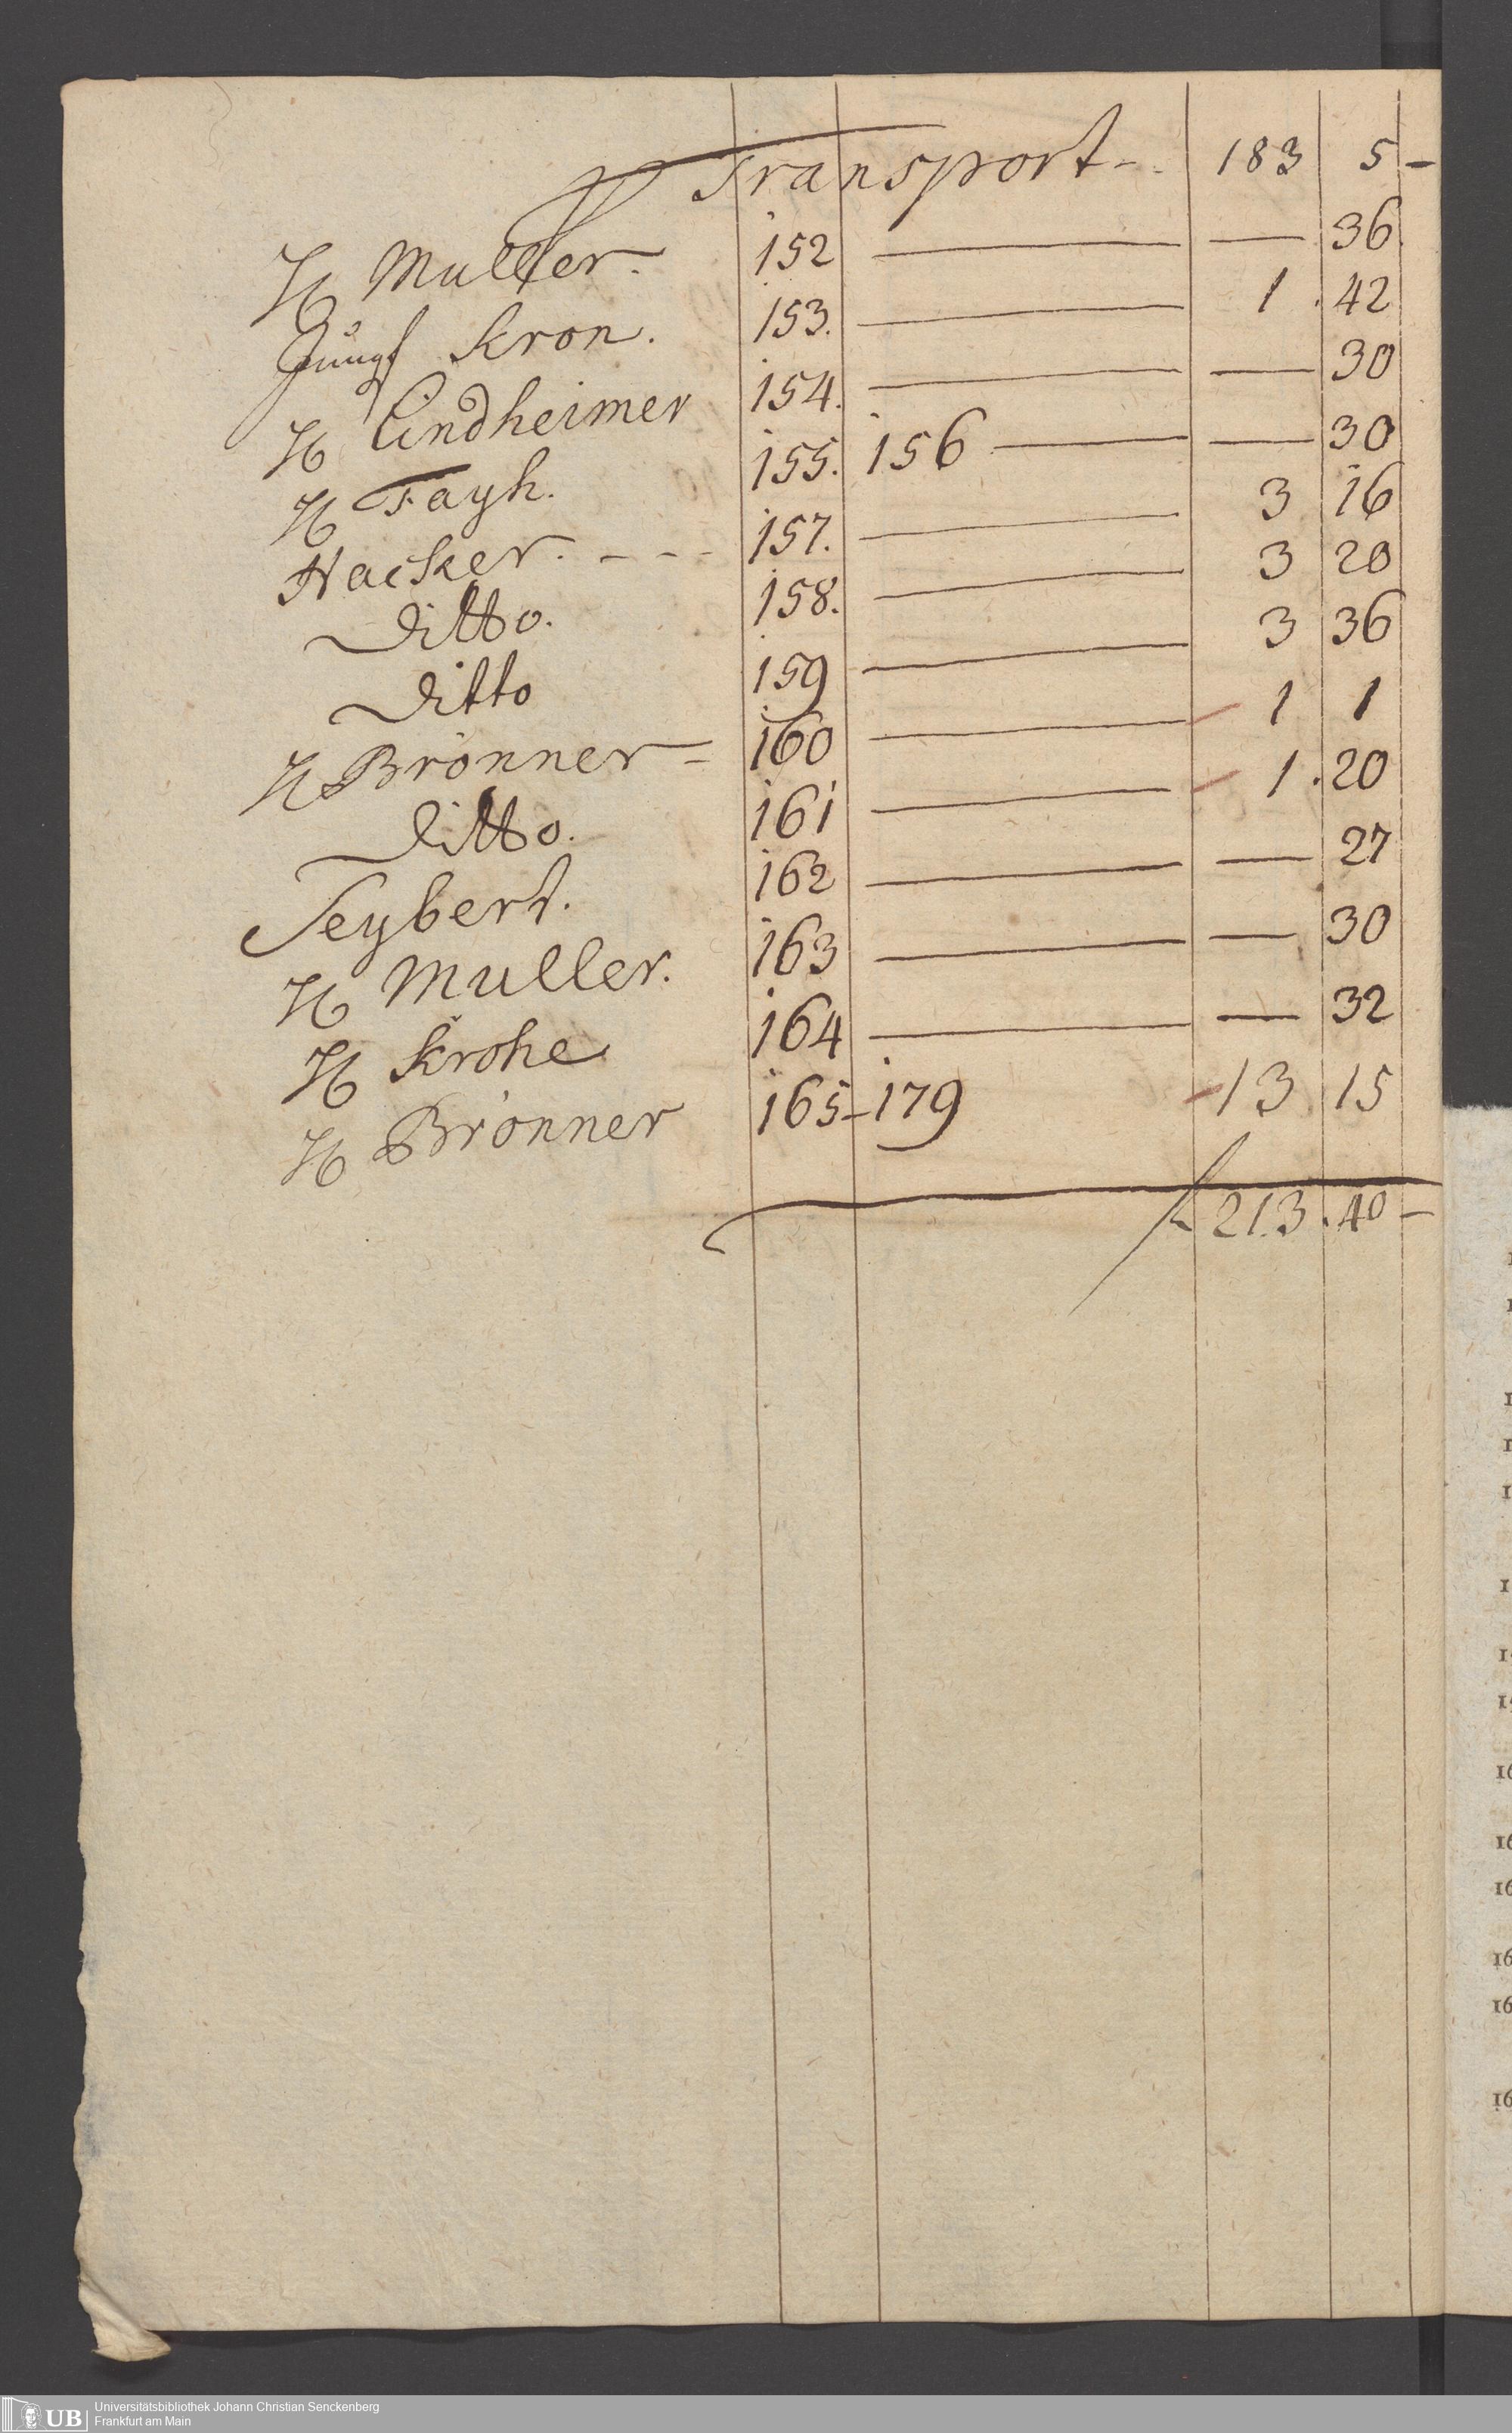 Transport - - 183 5 -
H Muller. 152 — — 36.
Jungf Kron. 153. — 1. 42
H Lindheimer 154. — — 30
H Fayh. 155. 156 — — 30
Hacker. - - - 157. — 3 16
Ditto. 158. — 3 20
Ditto 159 — 3 36
H Brönner - 160 — 1 1
Ditto. 161 — 1. 20
Seybert. 162 — — 27
H Muller. 163 — — 30
H Krohe 164 — — 32
H Brönner 165 - 179 13 15
f 213. 40 -
UB
Universitätsbibliothek Johann Christian Senckenberg
Frankfurt am Main